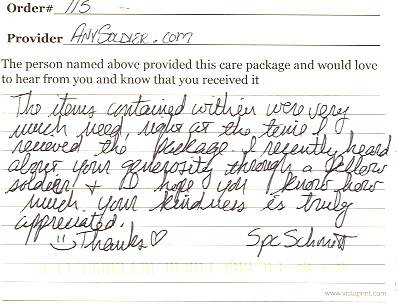 Order# 115
Provider AnySoldier.com
The person named above provided this care package and would love
to hear from you and know that you received it
The items contained within were very
much need, right at the time I
recieved the package I recently heard
about your generosity through a fellow
soldier & I hope you know how
much your kindness is truly
appreciated.
Thanks Spc Schmitt
www.vistaprint.com